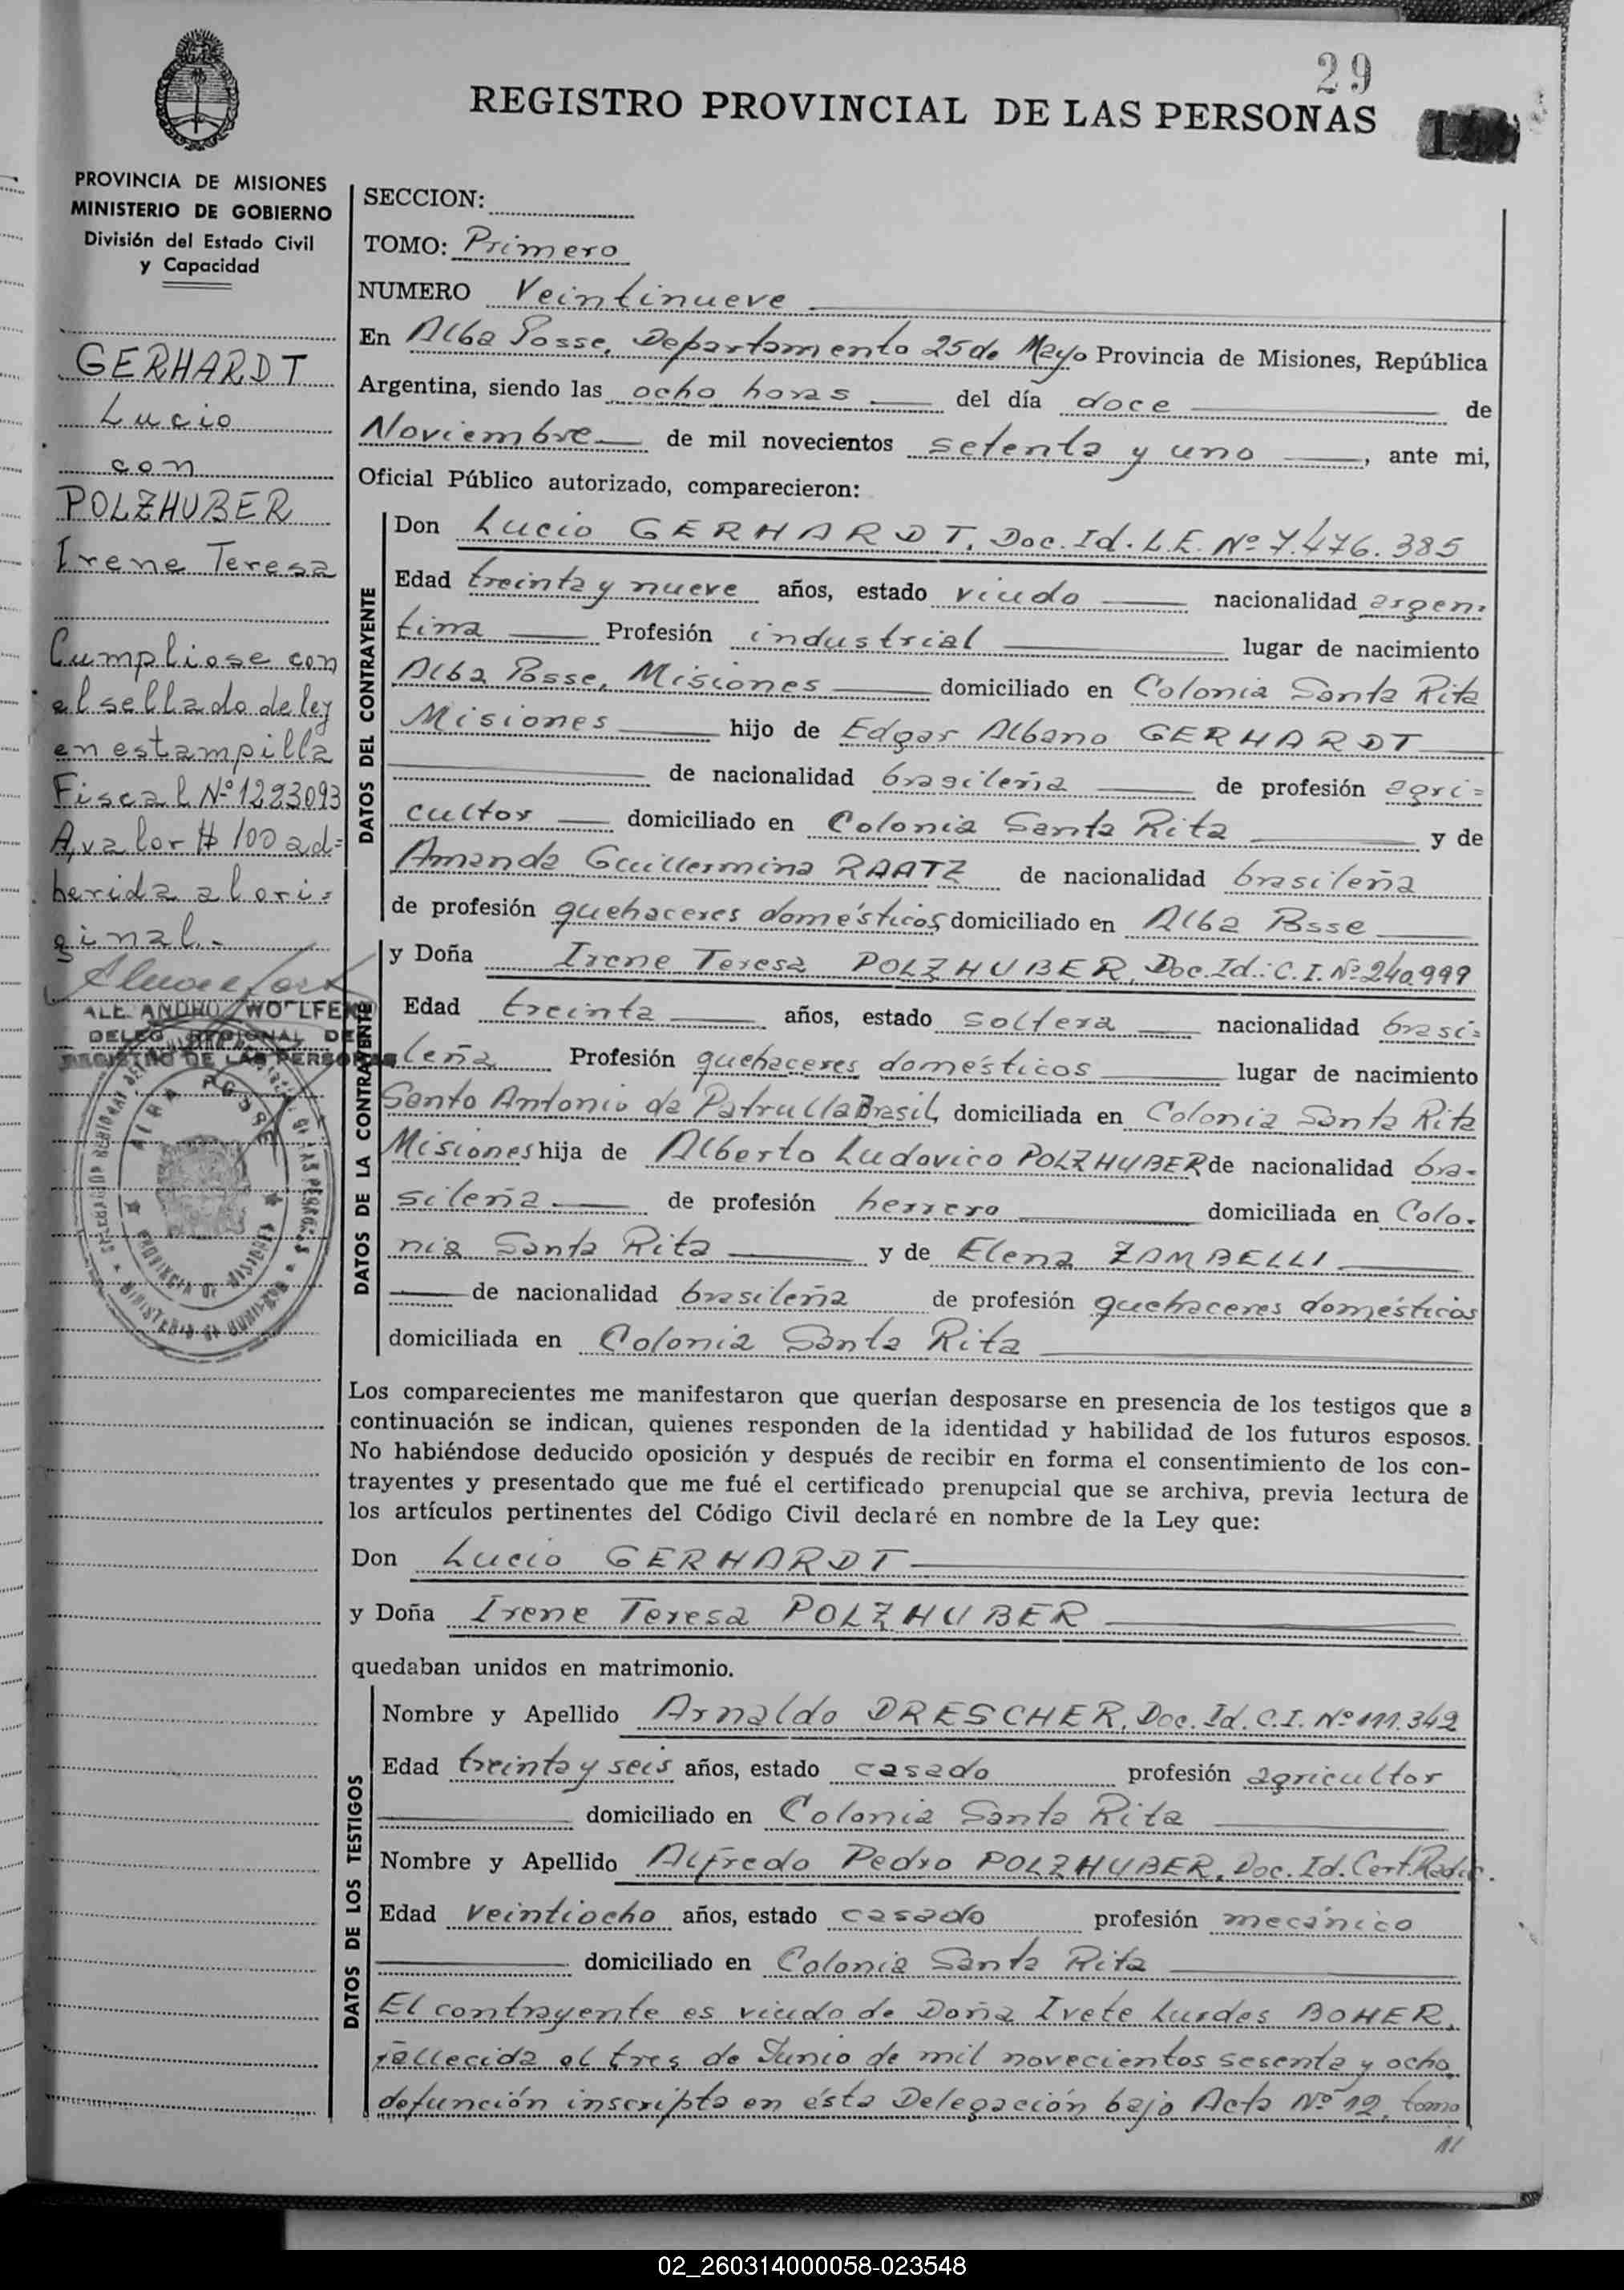 29
REGISTRO PROVINCIAL DE LAS PERSONAS
PROVINCIA DE MISIONES
MINISTERIO DE GOBIERNO
División del Estado Civil
y Capacidad
GERHARDT
Lucio
con
POLZHUBER
Irene Teresa
Cumpliose con
el sellado de ley
en estampilla
Fiscal Nº 1293093
A, valor $ 100 ad=
herida al ori=
ginal.-
WOLFE
DELEG. REGIONAL DEL
REGISTRO DE LAS PERSONAS
ALBA POSSE
PROVINCIA DE MISIONES
SECCION:
TOMO: Primero
NUMERO Veintinueve
En Alba Posse, Departamento 25 de Mayo Provincia de Misiones, República
Argentina, siendo las ocho horas del día doce de
Noviembre de mil novecientos setenta y uno, ante mi,
Oficial Público autorizado, comparecieron:
DATOS DEL CONTRAYENTE
Don Lucio GERHARDT, Doc. Id. L.E. Nº 7.476.385
Edad treinta y nueve años, estado viudo nacionalidad argen-
tina Profesión industrial lugar de nacimiento
Alba Posse, Misiones domiciliado en Colonia Santa Rita
Misiones hijo de Edgar Albano GERHARDT
de nacionalidad brasileña de profesión agri=
cultor domiciliado en Colonia Santa Rita y de
Amanda Guillermina RAATZ de nacionalidad brasileña
de profesión quehaceres domésticos domiciliado en Alba Posse
DATOS DE LA CONTRAYENTE
y Doña Irene Teresa POLZHUBER, Doc. Id.: C.I. Nº 240.999
Edad treinta años, estado soltera nacionalidad brasi=
leña Profesión quehaceres domésticos lugar de nacimiento
Santo Antonio da Patrulla Brasil, domiciliada en Colonia Santa Rita
Misiones hija de Alberto Ludovico POLZHUBER de nacionalidad bra-
sileña de profesión herrero domiciliada en Colo-
nia Santa Rita y de Elena ZAMBELLI
de nacionalidad brasileña de profesión quehaceres domésticos
domiciliada en Colonia Santa Rita
Los comparecientes me manifestaron que querían desposarse en presencia de los testigos que a
continuación se indican, quienes responden de la identidad y habilidad de los futuros esposos.
No habiéndose deducido oposición y después de recibir en forma el consentimiento de los con-
trayentes y presentado que me fué el certificado prenupcial que se archiva, previa lectura de
los artículos pertinentes del Código Civil declaré en nombre de la Ley que:
Don Lucio GERHARDT
y Doña Irene Teresa POLZHUBER
quedaban unidos en matrimonio.
DATOS DE LOS TESTIGOS
Nombre y Apellido Arnaldo DRESCHER, Doc. Id. C.I. Nº 111.342
Edad treinta y seis años, estado casado profesión agricultor
domiciliado en Colonia Santa Rita
Nombre y Apellido Alfredo Pedro POLZHUBER, Doc. Id. Cert. Radic.
Edad veintiocho años, estado casado profesión mecánico
domiciliado en Colonia Santa Rita
El contrayente es viudo de Doña Ivete Lurdes BOHER,
fallecida el tres de Junio de mil novecientos sesenta y ocho,
defunción inscripta en ésta Delegación bajo Acta Nº 12, tomo
02_260314000058-023548